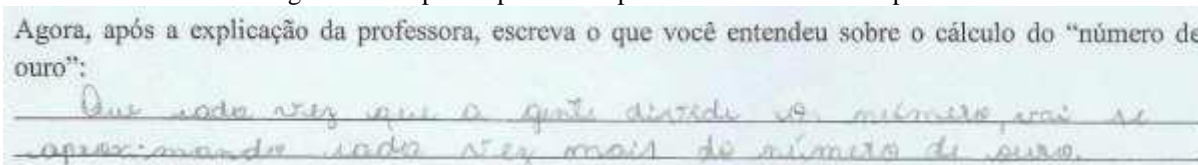 Agora, após a explicação da professora, escreva o que você entendeu sobre o cálculo do “número de
ouro”:
Que cada vez que a gente divide o número, vai se
aproximando cada vez mais do número de ouro.